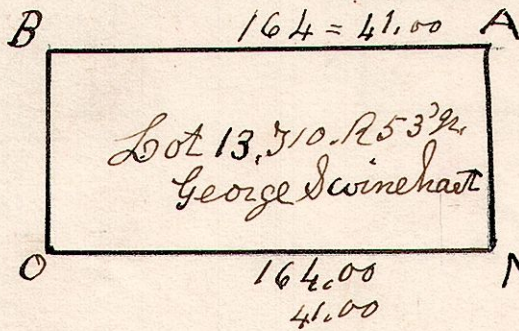 B 164 = 41.00 A
Lot 13, T10. R 53 gr.
George Swinehart
O 164.00
41.00